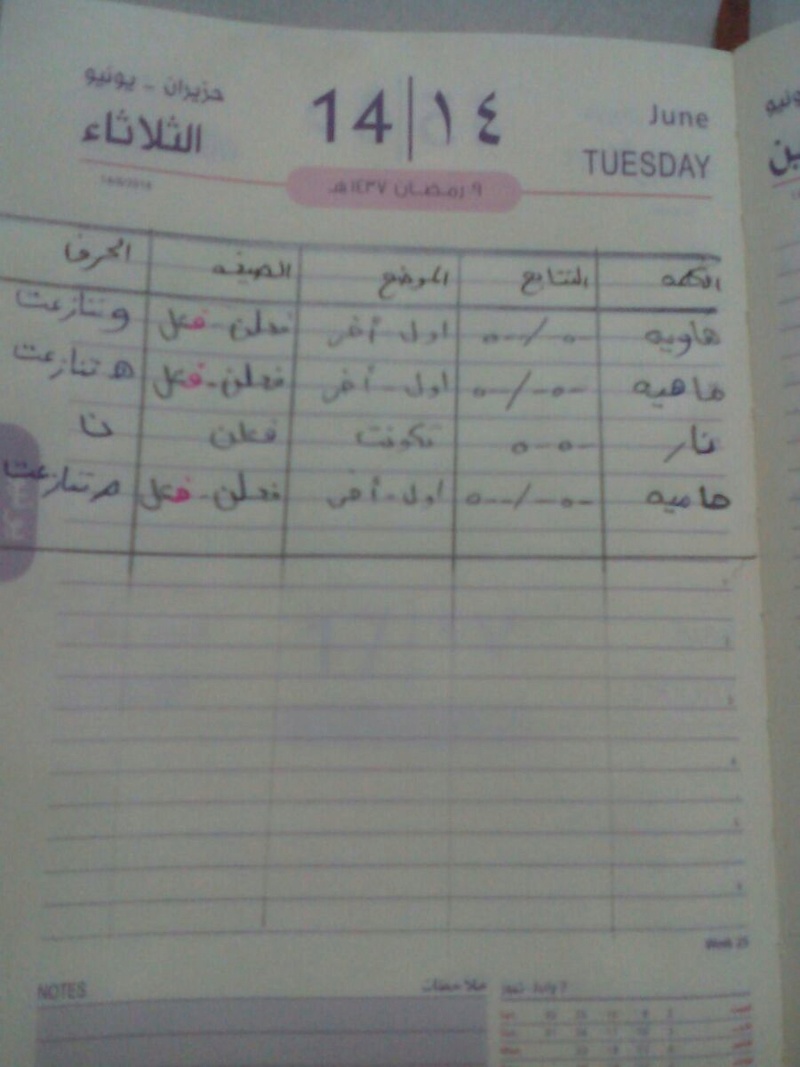 حزيران - يونيو
الثلاثاء
14 | ١٤
June
TUESDAY
٩ رمضان ١٤٣٧هـ
الكلمه التتابع الموضع الصيغه الحرف
هاويه اول - أخر فعلن - فعل و تنازعت
ماهيه اول - أخر فعلن - فعل ه تنازعت
نار تكونت فعلن ن
حاميه اول - أخر فعلن - فعل م تنازعت
Week 25
NOTES ملاحظات
July 7 تموز